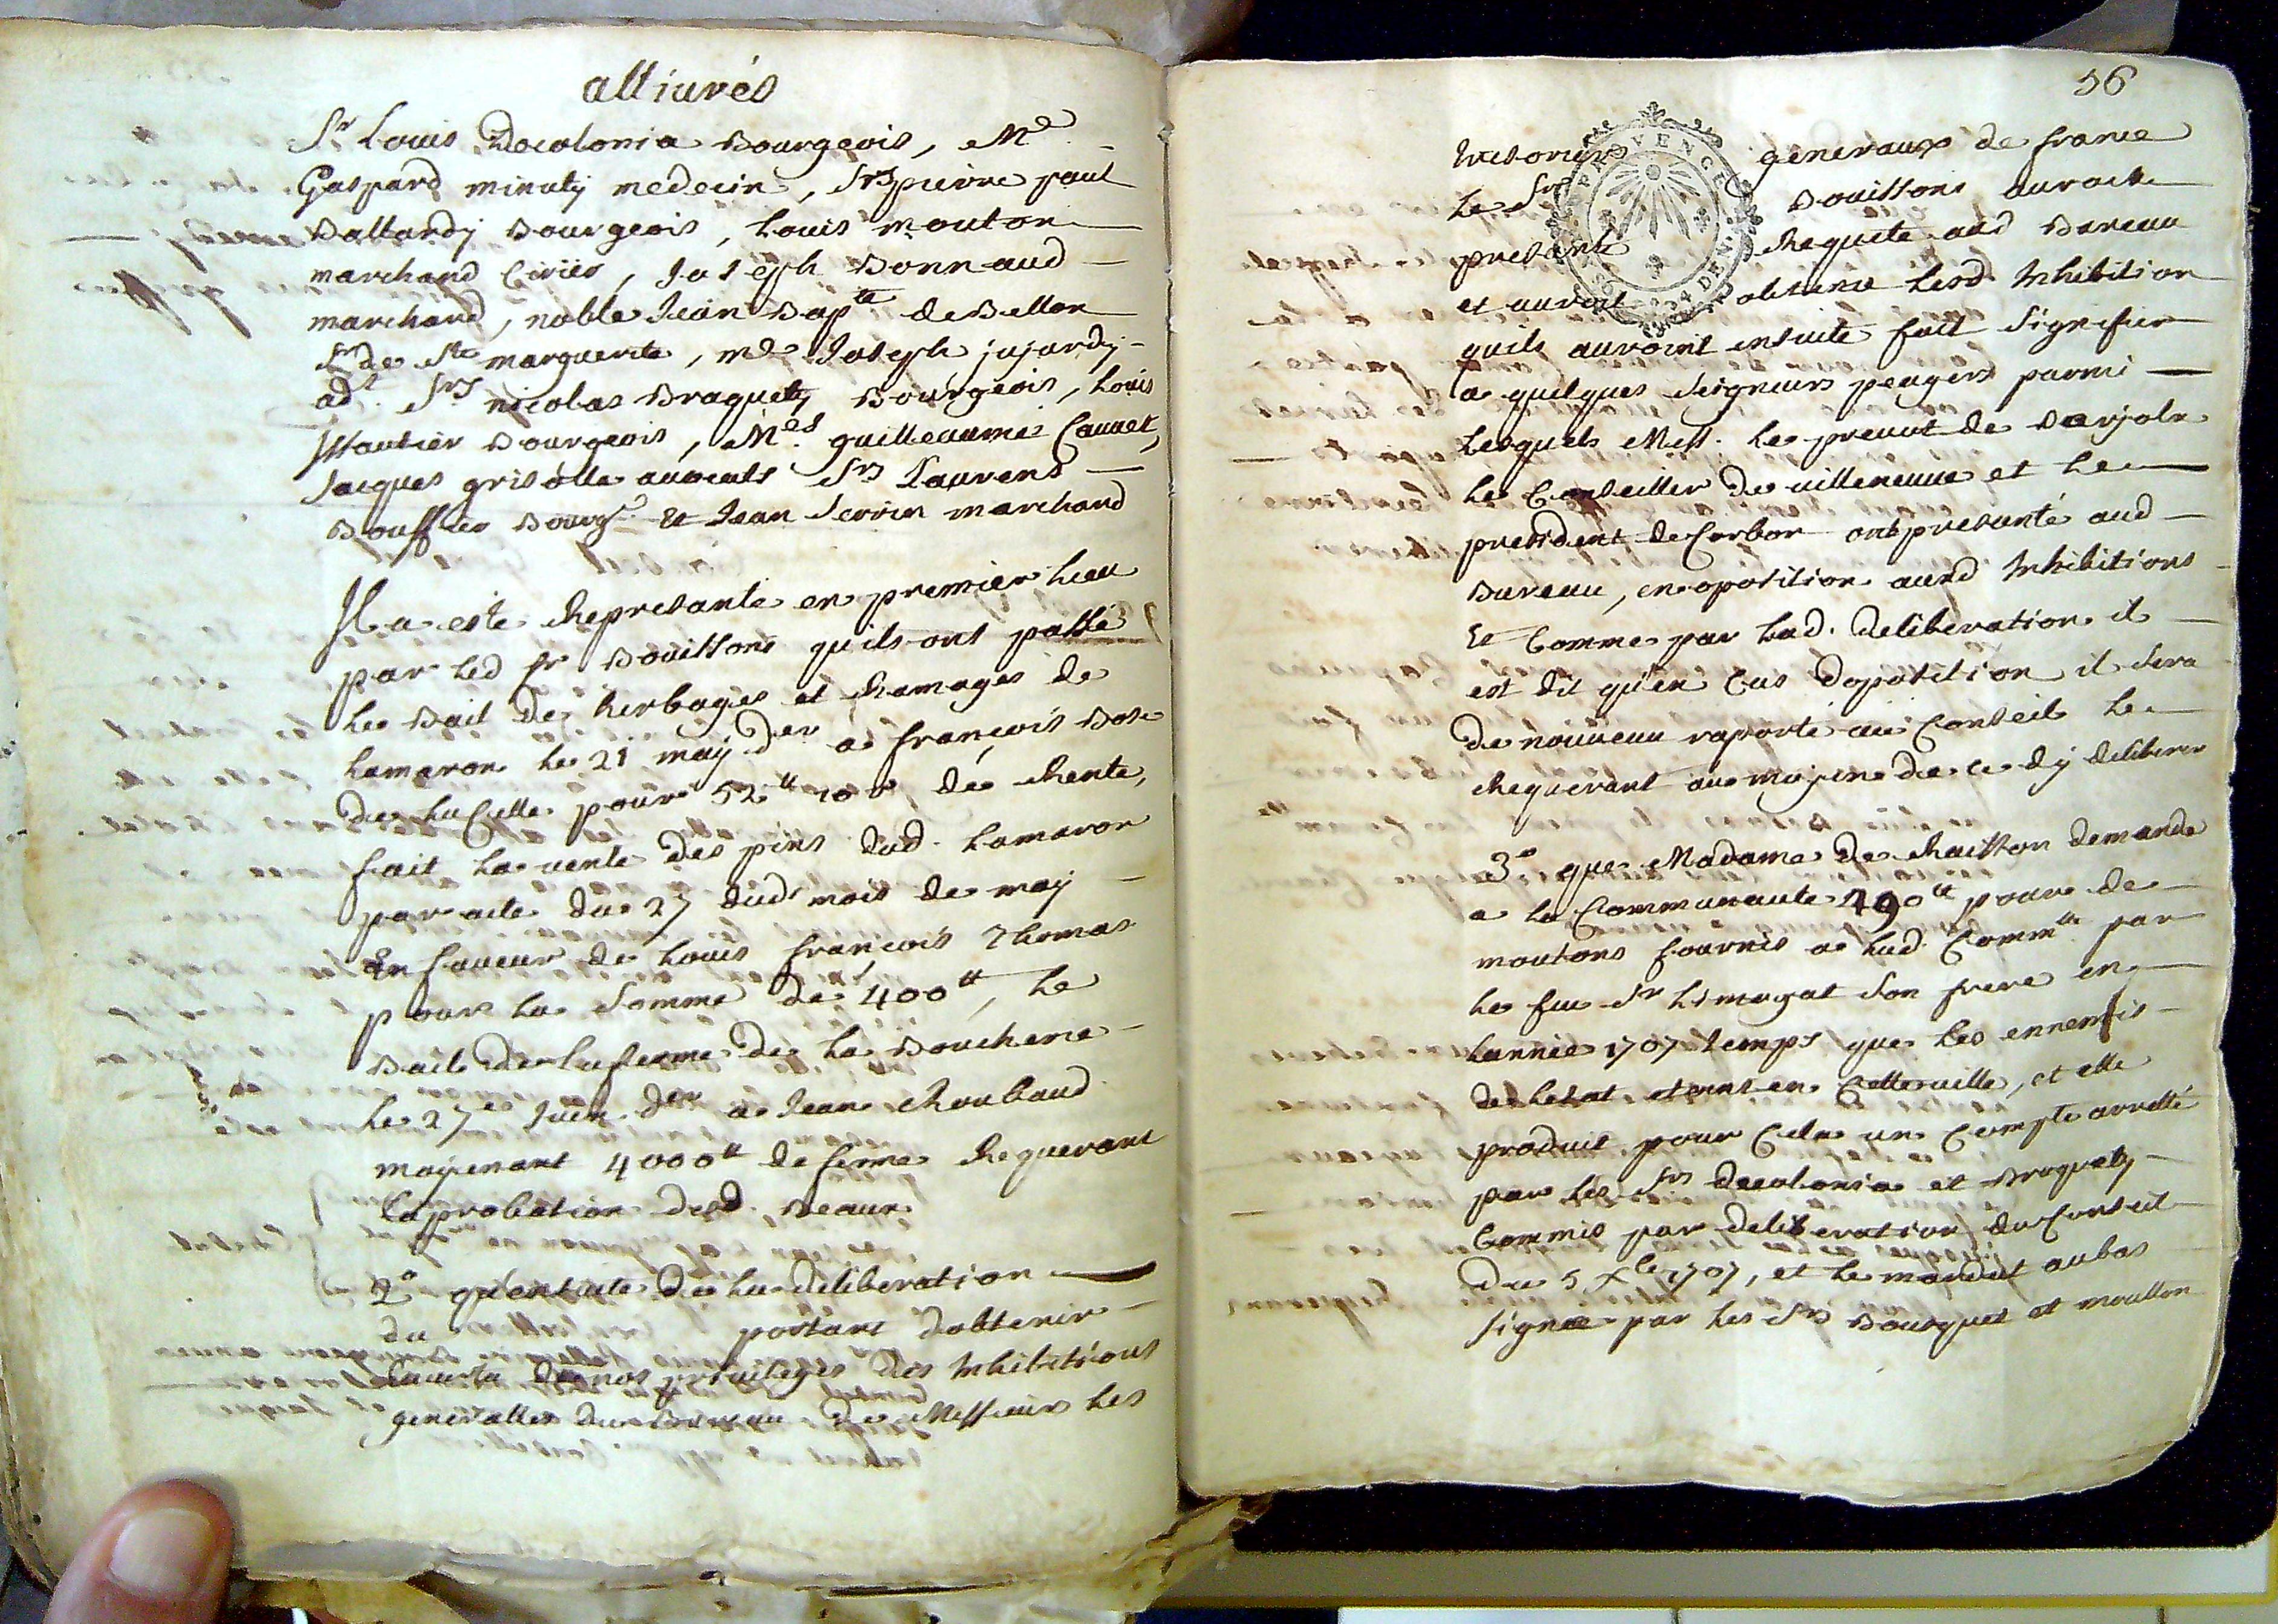 alliurés
Sr Louis Decolonia Bourgeois, Me
Gaspard minuty medecin, Srs pierre paul
Ballardy Bourgeois, Louis mouton
marchand Cirier, Joseph Bonnaud
marchand, noble Jean Bapte de Bellon
Sr de Ste marguerite, Me Joseph jujardy
adt Srs nicolas Braquety Bourgeois, Louis
Bourgeois, Mes guilleaume Cauuet,
Jacques grisolle auocats Srs Laurens
Bouffier Bourgs et Jean Serrin marchand
Il a esté Represanté en premier lieu
par led Sr Bouissons quils ont passé
le Bail des herbages et Ramages de
Lamaron le 21 may der a françois Bose
de la Celle pour 52tt 10s de Rente,
fait la vente des pins dud. Lamaron
par acte du 27 dud mois de may
En faueur de Louis françois Thomas
pour la Somme de 400tt, le
Bail de la ferme de la Boucherie
le 27e Juin der a Jean Roubaud
moyenant 4000tt de ferme Requerant
Laprobation desd. Beaux
2o qu'ensuite de la deliberation
du portant dobtenir
de nos priuileges des Inhibitions
generalles du Bureau de Messieurs les
56
tresoriers generaux de france
le Sr Bouissons auroit
presanté Requete aud Bureau
et auroit obtenu lesd Inhibition
quils auroint ensuite fait Signifier
a quelques Seigneurs peagers parmi
lesquels Mess. le preuot de Barjols
le Conseiller de uilleneuue et le
president de Corbon ont presanté aud
Bureau, en oposition auxd Inhibitions
Et Comme par lad. deliberation il
est dit qu'en Cas doposition il Sera
de nouueau raporté au Conseil le
Requerant au moyen de ce dy deliberer
3o que Madame de Raisson demande
a la Communauté 290tt pour de
moutons fournis a lad. Commté par
le feu Sr Limogat Son frere en
lannée 1707 temps que les ennemis
de lestat etoint en Cette uille, et elle
produit pour Cela un Compte arretté
par les Srs decolonia et Braquety
Commis par deliberation du Conseil
du 5 Xbe 1707, et le mandat au bas
Signée par les Srs Bousquet et moutton
PROVENCE
DEN.